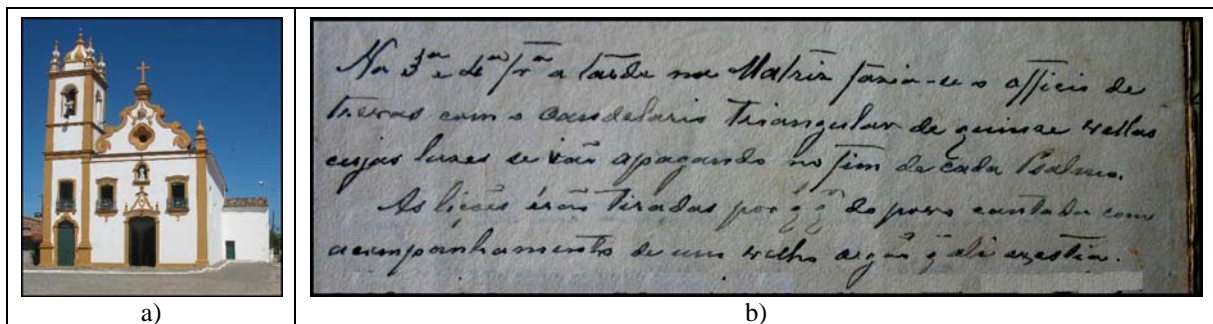 Na 3ª e 4ª frª a tarde na Matriz fazia-se o officio de
trevas com o candelario triangular de quinze vellas
cujas luzes se vão apagando no fim de cada Psalmo.
As lições erão tiradas por do povo cantada com
acompanhamento de um velho orgão q̃ ali existia.
a)
b)